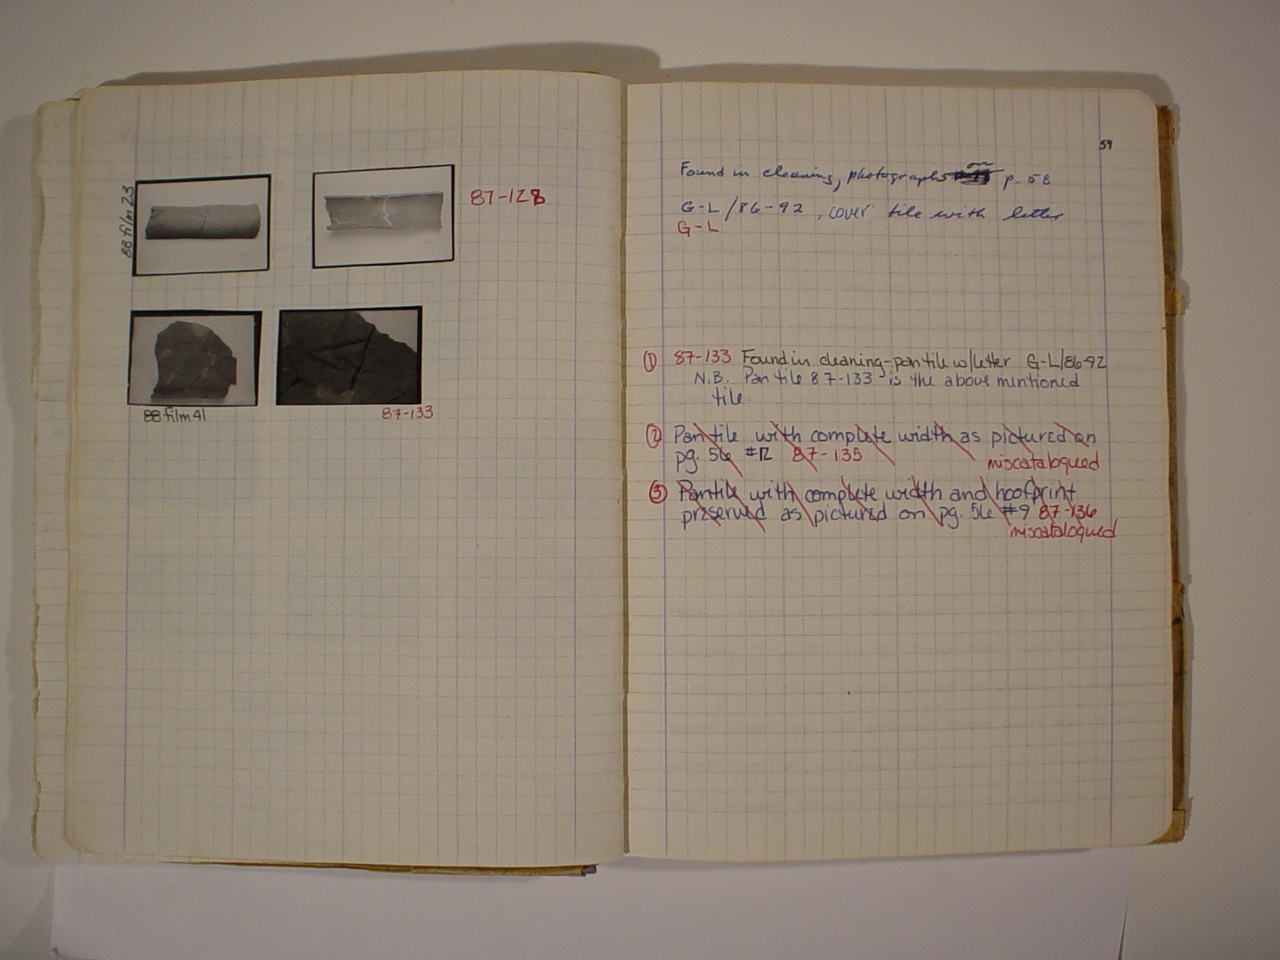 88 film 23
87-128
88 film 41
87-133
59
Found in cleaning, photographs on p. 58
G-L/86-92, cover tile with letter
G-L
① 87-133 Found in cleaning-pan tile w/letter G-L/86-92
N.B. Pan tile 87-133 is the above mintioned
tile
② Pan tile with complete width as pictured on
pg. 56 #12 87-135
miscatalogued
③ Pantile with complete width and hoofprint
preserved as pictured on pg. 56 #9 87-136
miscatalogued